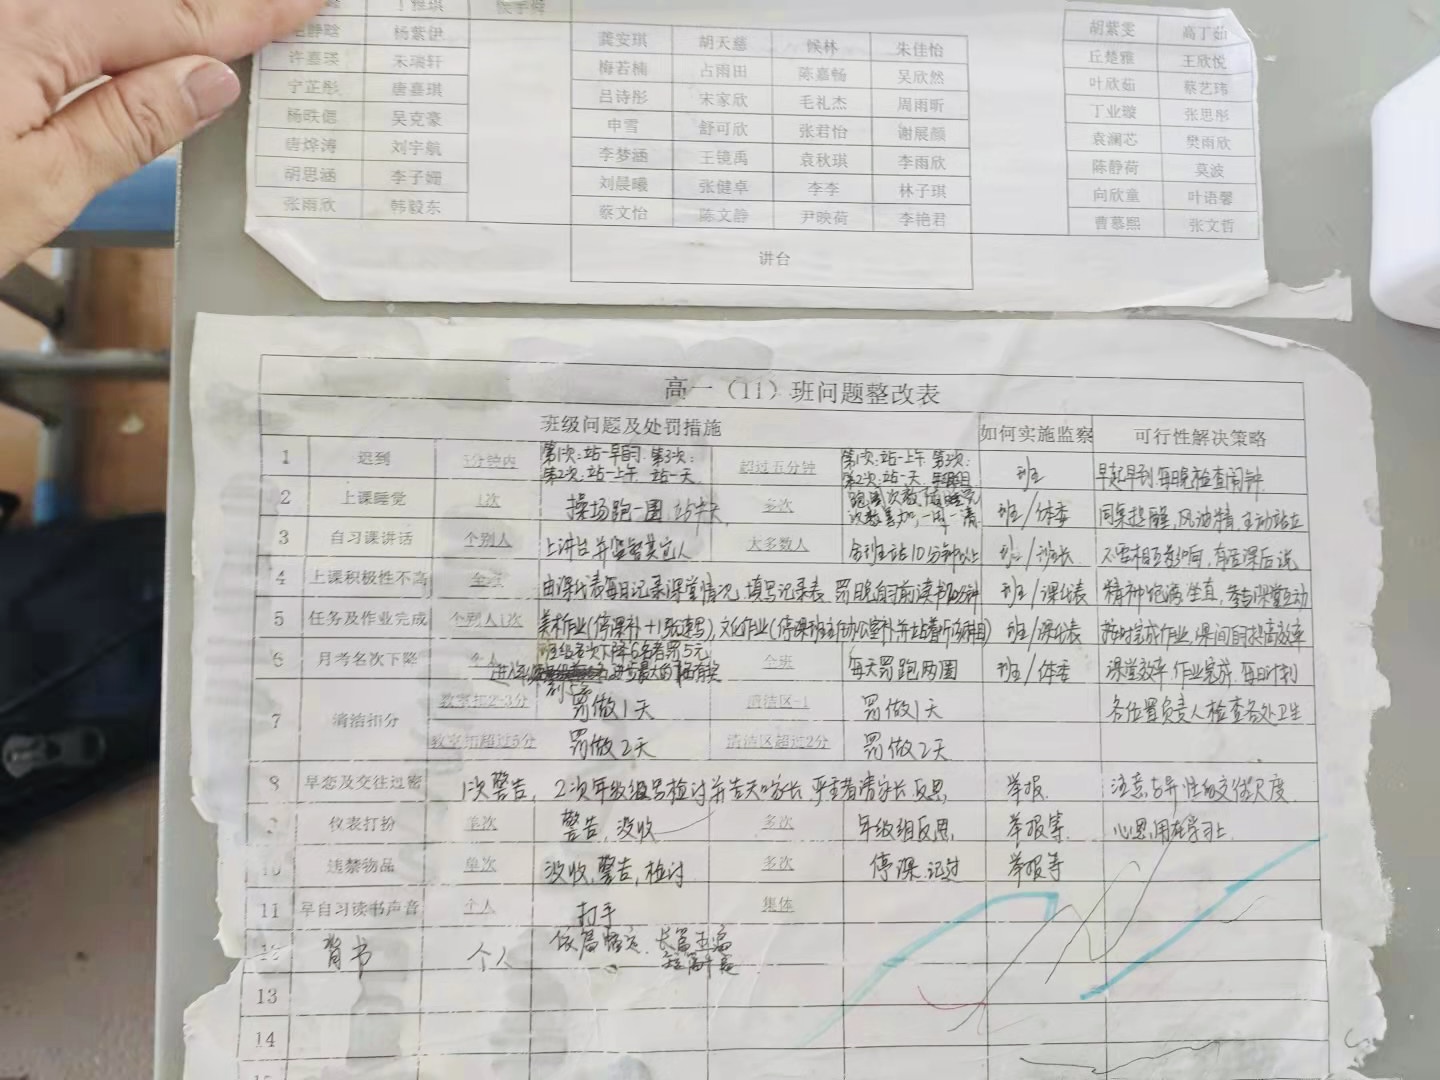 丁雅琪
杨紫伊
许嘉瑛 朱瑞轩
宁芷彤 唐嘉琪
杨昳偲 吴克豪
唐烨涛 刘宇航
胡思涵 李子姗
张雨欣 韩毅东
龚安琪 胡天慈 候林 朱佳怡
梅若楠 占雨田 陈嘉畅 吴欣然
吕诗彤 宋家欣 毛礼杰 周雨昕
申雪 舒可欣 张君怡 谢展颜
李梦涵 王镜禹 袁秋琪 李雨欣
刘晨曦 张健卓 李李 林子琪
蔡文怡 陈文静 尹映荷 李艳君
讲台
胡紫雯 高丁茹
丘楚雅 王欣悦
叶欣茹 蔡艺玮
丁业璇 张思彤
袁澜芯 樊雨欣
陈静荷 莫波
向欣童 叶语馨
曹慕熙 张文哲
高一（11）班问题整改表
班级问题及处罚措施 如何实施监察 可行性解决策略
1 迟到 5分钟内 第1次:站一早自习 第3次:
第2次:站一上午 站一天
超过五分钟 第1次:站一上午 第3次:
第2次:站一天
班主 早起早到 每日晚检查闹钟
2 上课睡觉 1次 操场跑一圈,站半天 多次 班主/体委 同桌提醒,风油精,主动站立
3 自习课讲话 个别人 上讲台并监督其它人 大多数人 全班主站10分钟以上 班主/班长 不要相互影响,有话课后说
4 上课积极性不高 全班 由课代表每日记录课堂情况,填写记录表 班主/课代表 精神饱满,坐直,参与课堂互动
5 任务及作业完成 个别人1次 美术作业(停课补+1张速写),文化作业 班主/课代表 按时完成作业,课间自习提高效率
6 月考名次下降 个人 班级名次下降6名者罚5元 全班 每天罚跑两圈 班主/体委 课堂效率,作业完成,每日计划
7 清洁扣分 教室扣2-3分 罚做1天 清洁区-1 罚做1天 各位置负责人检查各处卫生
教室扣超过5分 罚做2天 清洁区超过2分 罚做2天
8 早恋及交往过密 1次警告, 2次年级组写检讨并告知家长,严重者请家长,反思 举报 注意与异性的交往尺度
9 仪表打扮 单次 警告,没收 多次 年级组反思 举报等 心思用在学习上
10 违禁物品 单次 没收,警告,检讨 多次 停课,记过 举报等
11 早自习读书声音 个人 打手 集体
12 背书 个人 长篇五遍
13
14